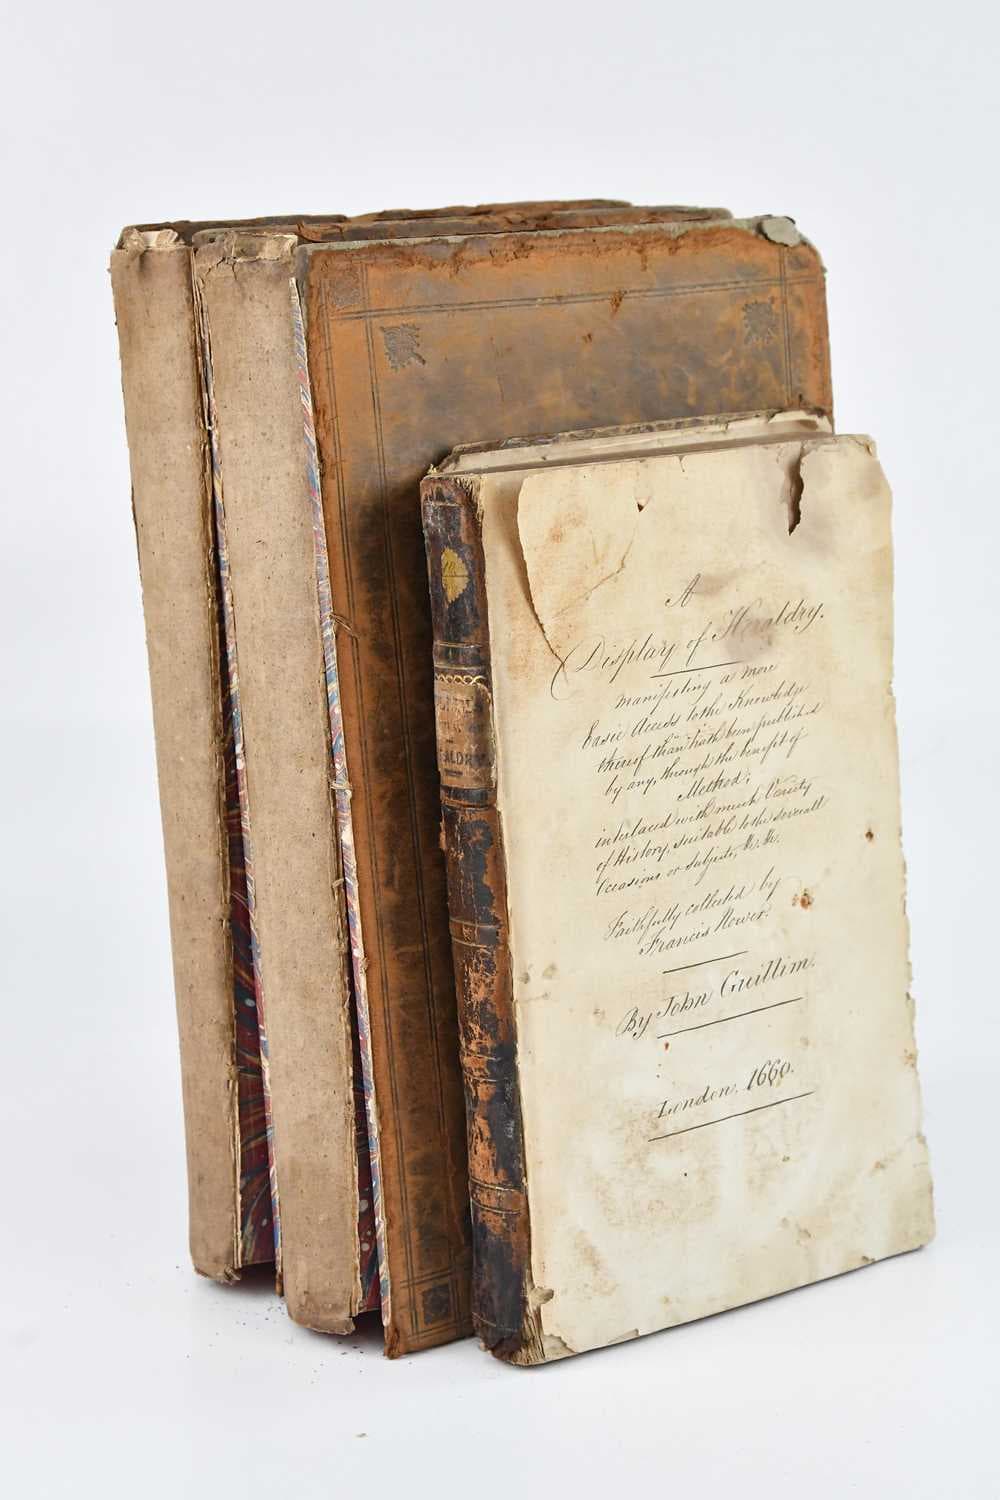 A
Display of Heraldry.
manifesting a more
Easie Access to the Knowledge
thereof than hath been published
by any, through the benefit of
Method;
interlaced with much Variety
of History, suitable to the severall
Occasions or Subjects, &c. &c.
Faithfully collected by
Francis Nower.
By John Guillim.
London. 1660.